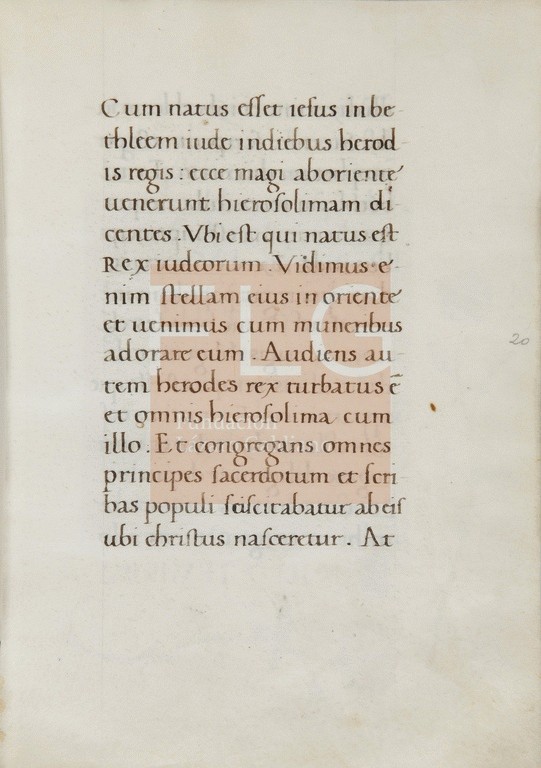 Cum natus esset iesus in be
thleem iude in diebus herod
is regis : ecce magi ab oriente
uenerunt hierosolimam di
centes . Vbi est qui natus est
Rex iudeorum . Vidimus e
nim stellam eius in oriente
et uenimus cum muneribus
adorare eum . Audiens au
tem herodes rex turbatus ē
et omnis hierosolima cum
illo . Et congregans omnes
principes sacerdotum et scri
bas populi sciscitabatur ab eis
ubi christus nasceretur . At
20
FLG
Fundación
Lázaro Galdiano